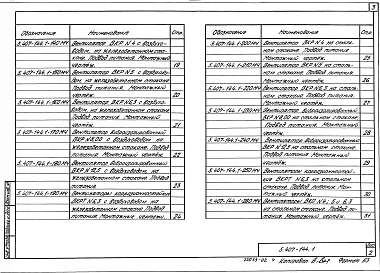 3
Обозначение Наименование Стр.
5.407-144.1-140МЧ Вентилятор ВКР №4 с воздухо-
водом, на железобетонном ста-
кане. Подвод питания. Монтажный
чертёж. 19
5.407-144.1-150МЧ Вентилятор ВКР №5 с воздухово-
дом на железобетонном стакане
Подвод питания. Монтажный
чертёж. 20
5.407-144.1-160МЧ Вентилятор ВКР №6,3 с воздухо-
водом на железобетонном стакане
Подвод питания. Монтажный
чертёж. 21
5.407-144.1-170МЧ Вентилятор виброизолированный
с воздуховодом на
железобетонном стакане. Подвод
питания. Монтажный чертёж. 22
5.407-144.1-180МЧ Вентилятор виброизолированный
ВКР №12,5 с воздуховодом, на
железобетонном стакане. Подвод
питания 23
5.407-144.1-190МЧ Вентиляторы коррозионностойкие
ВКРТ №6,3 с воздуховодом на
железобетонном стакане. Подвод
питания. Монтажные чертежи. 24
Обозначение Наименование Стр.
5.407-144.1-200МЧ Вентилятор ВКР №4 на сталь-
ном стакане. Подвод питания
Монтажный чертёж. 25
5.407-144.1-210МЧ Вентилятор ВКР №5 на сталь-
ном стакане. Подвод питания.
Монтажный чертёж. 26
5.407-144.1-220МЧ Вентилятор ВКР №6,3 на сталь-
ном стакане. Подвод питания
Монтажный чертёж. 27
5.407-144.1-230МЧ Вентилятор виброизолированный
на стальном стакане
Подвод питания. Монтажный
чертёж. 28
5.407-144.1-240МЧ Вентилятор виброизолированный
ВКР №12,5 на стальном стакане
Подвод питания. Монтажный
чертёж. 29
5.407-144.1-250МЧ Вентиляторы коррозионностой-
кие ВКРТ №6,3 на стальном
стакане. Подвод питания. Мон-
тажный чертёж. 30
5.407-144.1-260МЧ Вентиляторы ВКР №4; 5 и 6,3
на стальном стакане. Подвод пи-
тания. Монтажный чертёж. 31
5.407-144.1
Лист
2
Копировал Формат А3